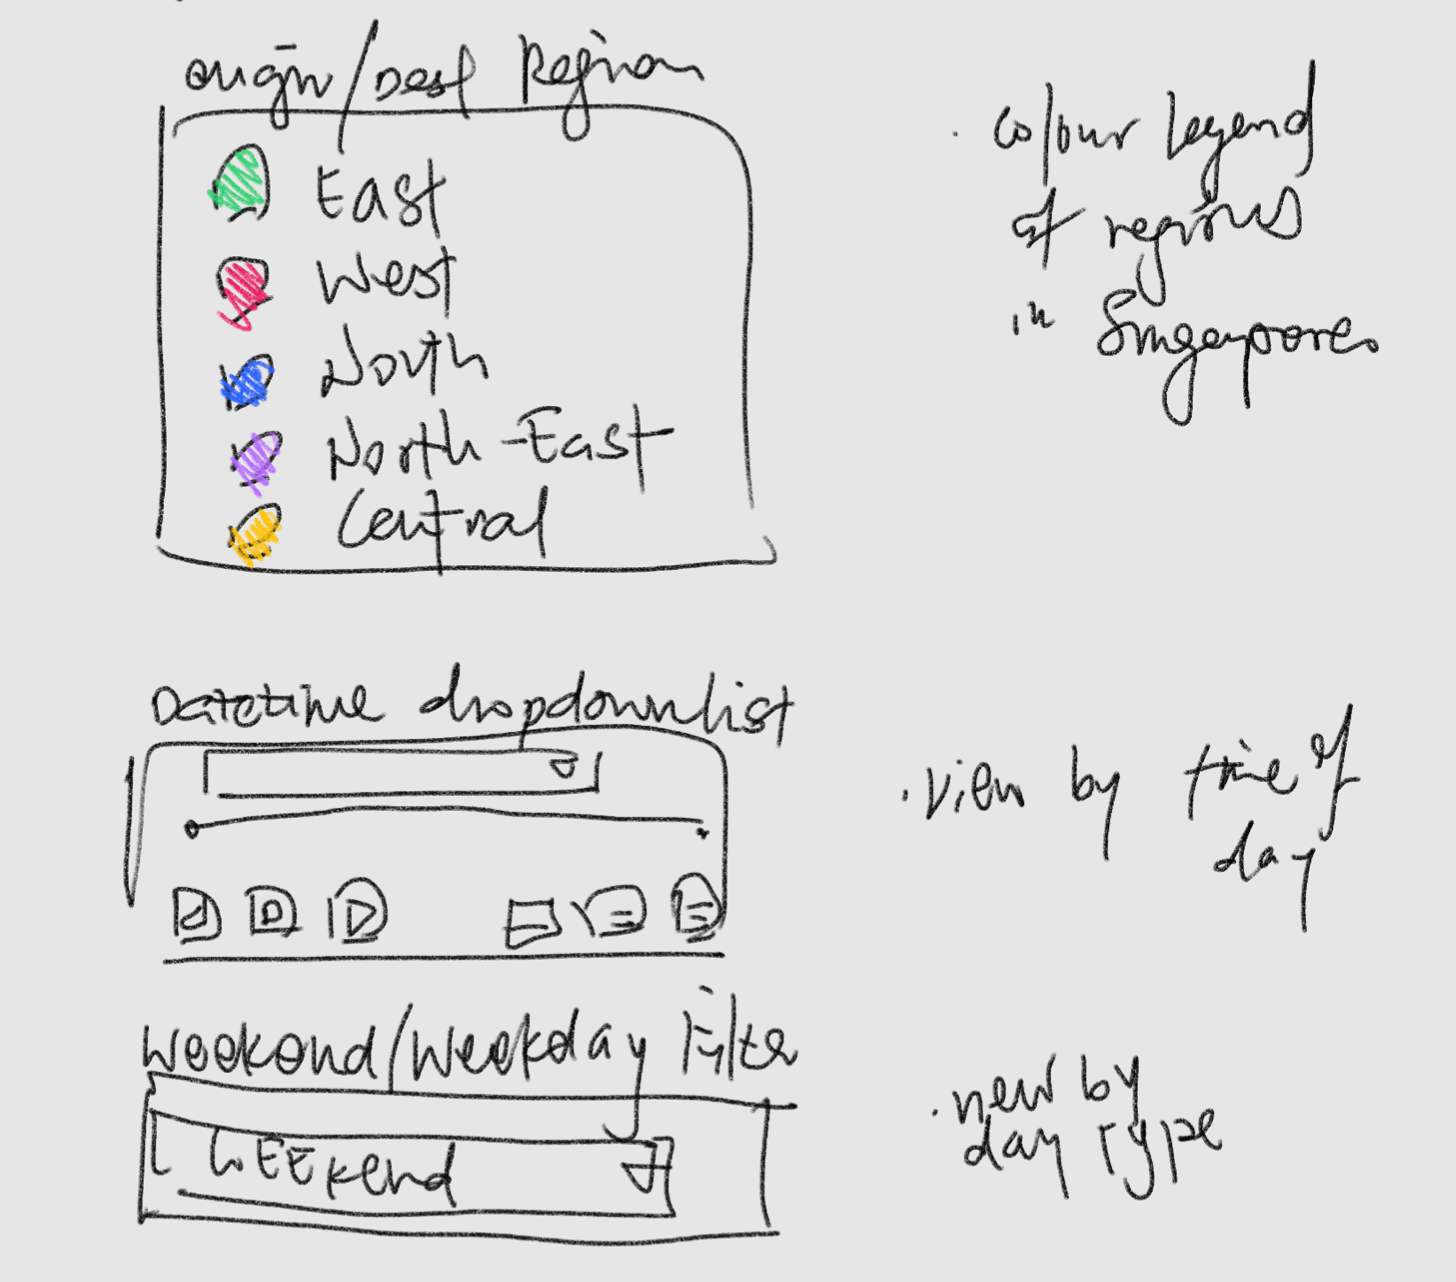 Origin/Dest Region
East
West
North
North-East
Central
· Colour Legend
of regions
in Singapore
Datetime dropdownlist
· View by time of
day
Weekend/Weekday Filter
WEEKend
· view by
day type